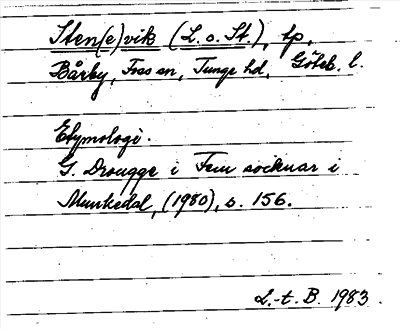 Sten(e)vik (L. o. St.), tp.
Bårby, Foss sn, Tunge hd, Göteb. l.
Etymologi.
G. Drougge i Fem socknar i
Munkedal, (1980), s. 156.
L.-t. B. 1983.